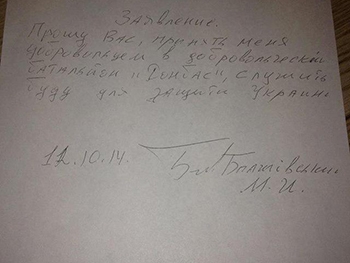 Заявление.
Прошу Вас, принять меня
добровольцем в добровольческий
батальйон "Донбас", служить
буду для защити Украини
12.10.14.
М. И.